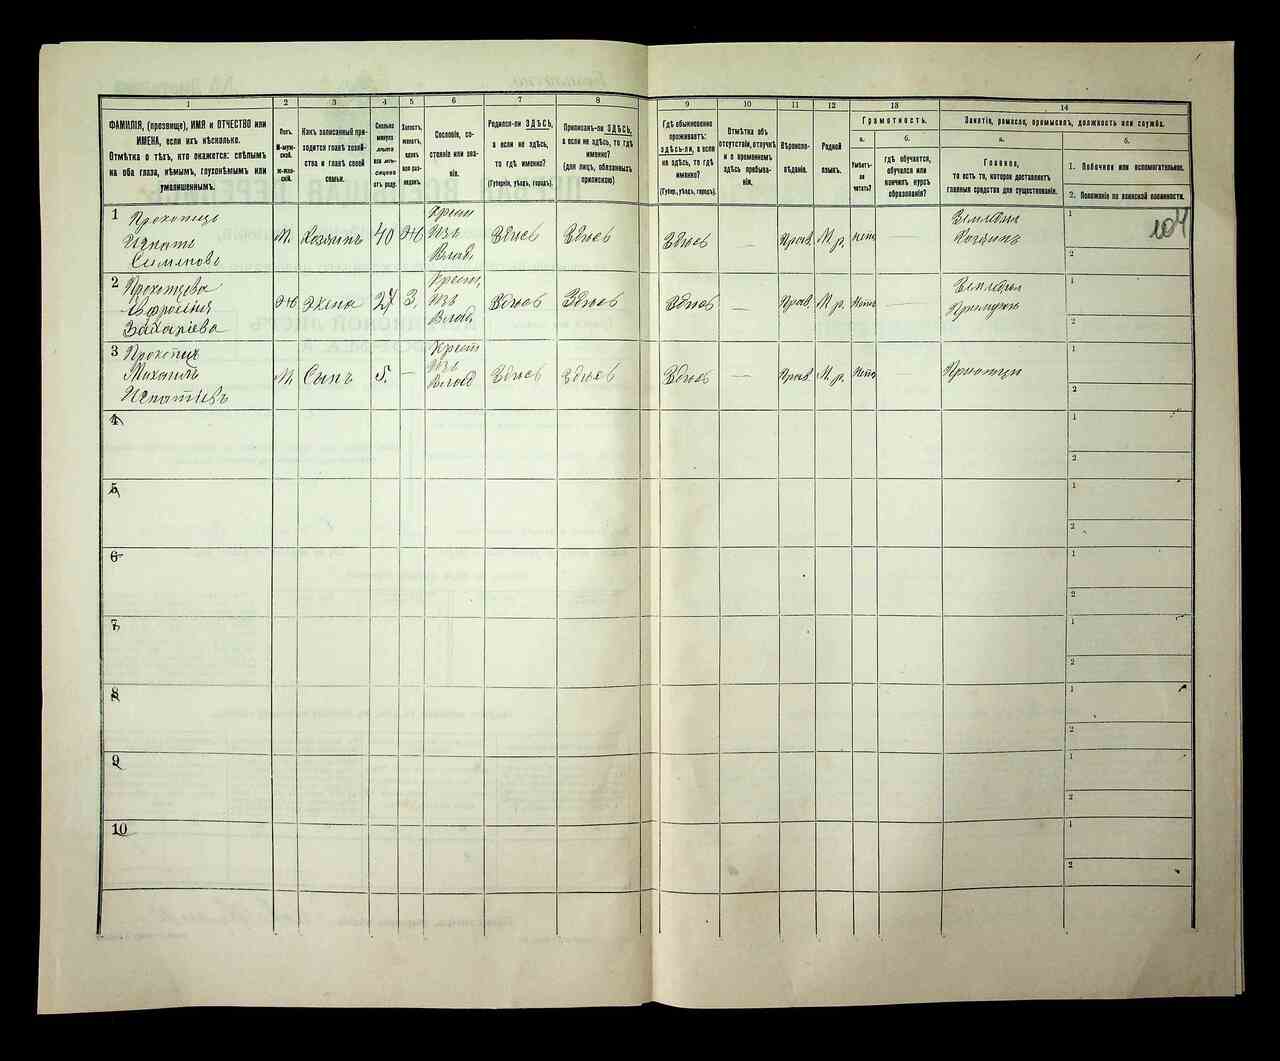 1
2
3
4
5
6
7
8
9
10
11
12
13
14
ФАМИЛІЯ, (прозвище), ИМЯ и ОТЧЕСТВО или
ИМЕНА, если ихъ нѣсколько.
Отмѣтка о тѣхъ, кто окажется: слѣпымъ
на оба глаза, нѣмымъ, глухонѣмымъ или
умалишеннымъ.
Полъ.
М-муж-
ской.
ж-жен-
скій.
Какъ записанный при-
ходится главѣ хозяй-
ства и главѣ своей
семьи.
Сколько
минуло
лѣтъ
или мѣ-
сяцевъ
отъ роду.
Холостъ,
женатъ,
вдовъ
или раз-
веденъ.
Сословіе, со-
стояніе или зва-
ніе.
Родился-ли ЗДѢСЬ,
а если не здѣсь,
то гдѣ именно?
(Губернія, уѣздъ, городъ).
Приписанъ-ли ЗДѢСЬ,
а если не здѣсь, то гдѣ
именно?
(для лицъ, обязанныхъ
припискою)
Гдѣ обыкновенно
проживаетъ:
здѣсь-ли, а если
не здѣсь, то гдѣ
именно?
(Губер., уѣздъ, городъ).
Отмѣтка объ
отсутствіи, отлучкѣ
и о временномъ
здѣсь пребыва-
ніи.
Вѣроиспо-
вѣданіе.
Родной
языкъ.
Грамотность.
а.
б.
Умѣетъ-
ли
читать?
гдѣ обучается,
обучался или
кончилъ курсъ
образованія?
Занятіе, ремесло, промыселъ, должность или служба.
а.
б.
Главное,
то есть то, которое доставляетъ
главныя средства для существованія.
1. Побочное или вспомогательное.
2. Положеніе по воинской повинности.
1
Прокопецъ
Игнатъ
Симоновъ
М.
Хозяинъ
40
Ж
Крест
Изъ
Влад.
Здѣсь
Здѣсь
Здѣсь
—
Прав.
М. р.
нет
—
Земледѣл
Хозяинъ
1
104
2
2
Евфросинія
Захаріева
Ж
Жена
27
З.
Крест.
Изъ
Влад.
Здѣсь
Здѣсь
Здѣсь
—
Прав.
М. р.
Нет
—
Земледѣл
1
2
3
Михаилъ
Игнатіевъ
М.
Сынъ
5.
—
Крест
Изъ
Влад
Здѣсь
Здѣсь
Здѣсь
—
Прав.
М. р.
Нет
—
1
2
4
1
2
5
1
2
6
1
2
7
1
2
8
1
2
9
1
2
10
1
2